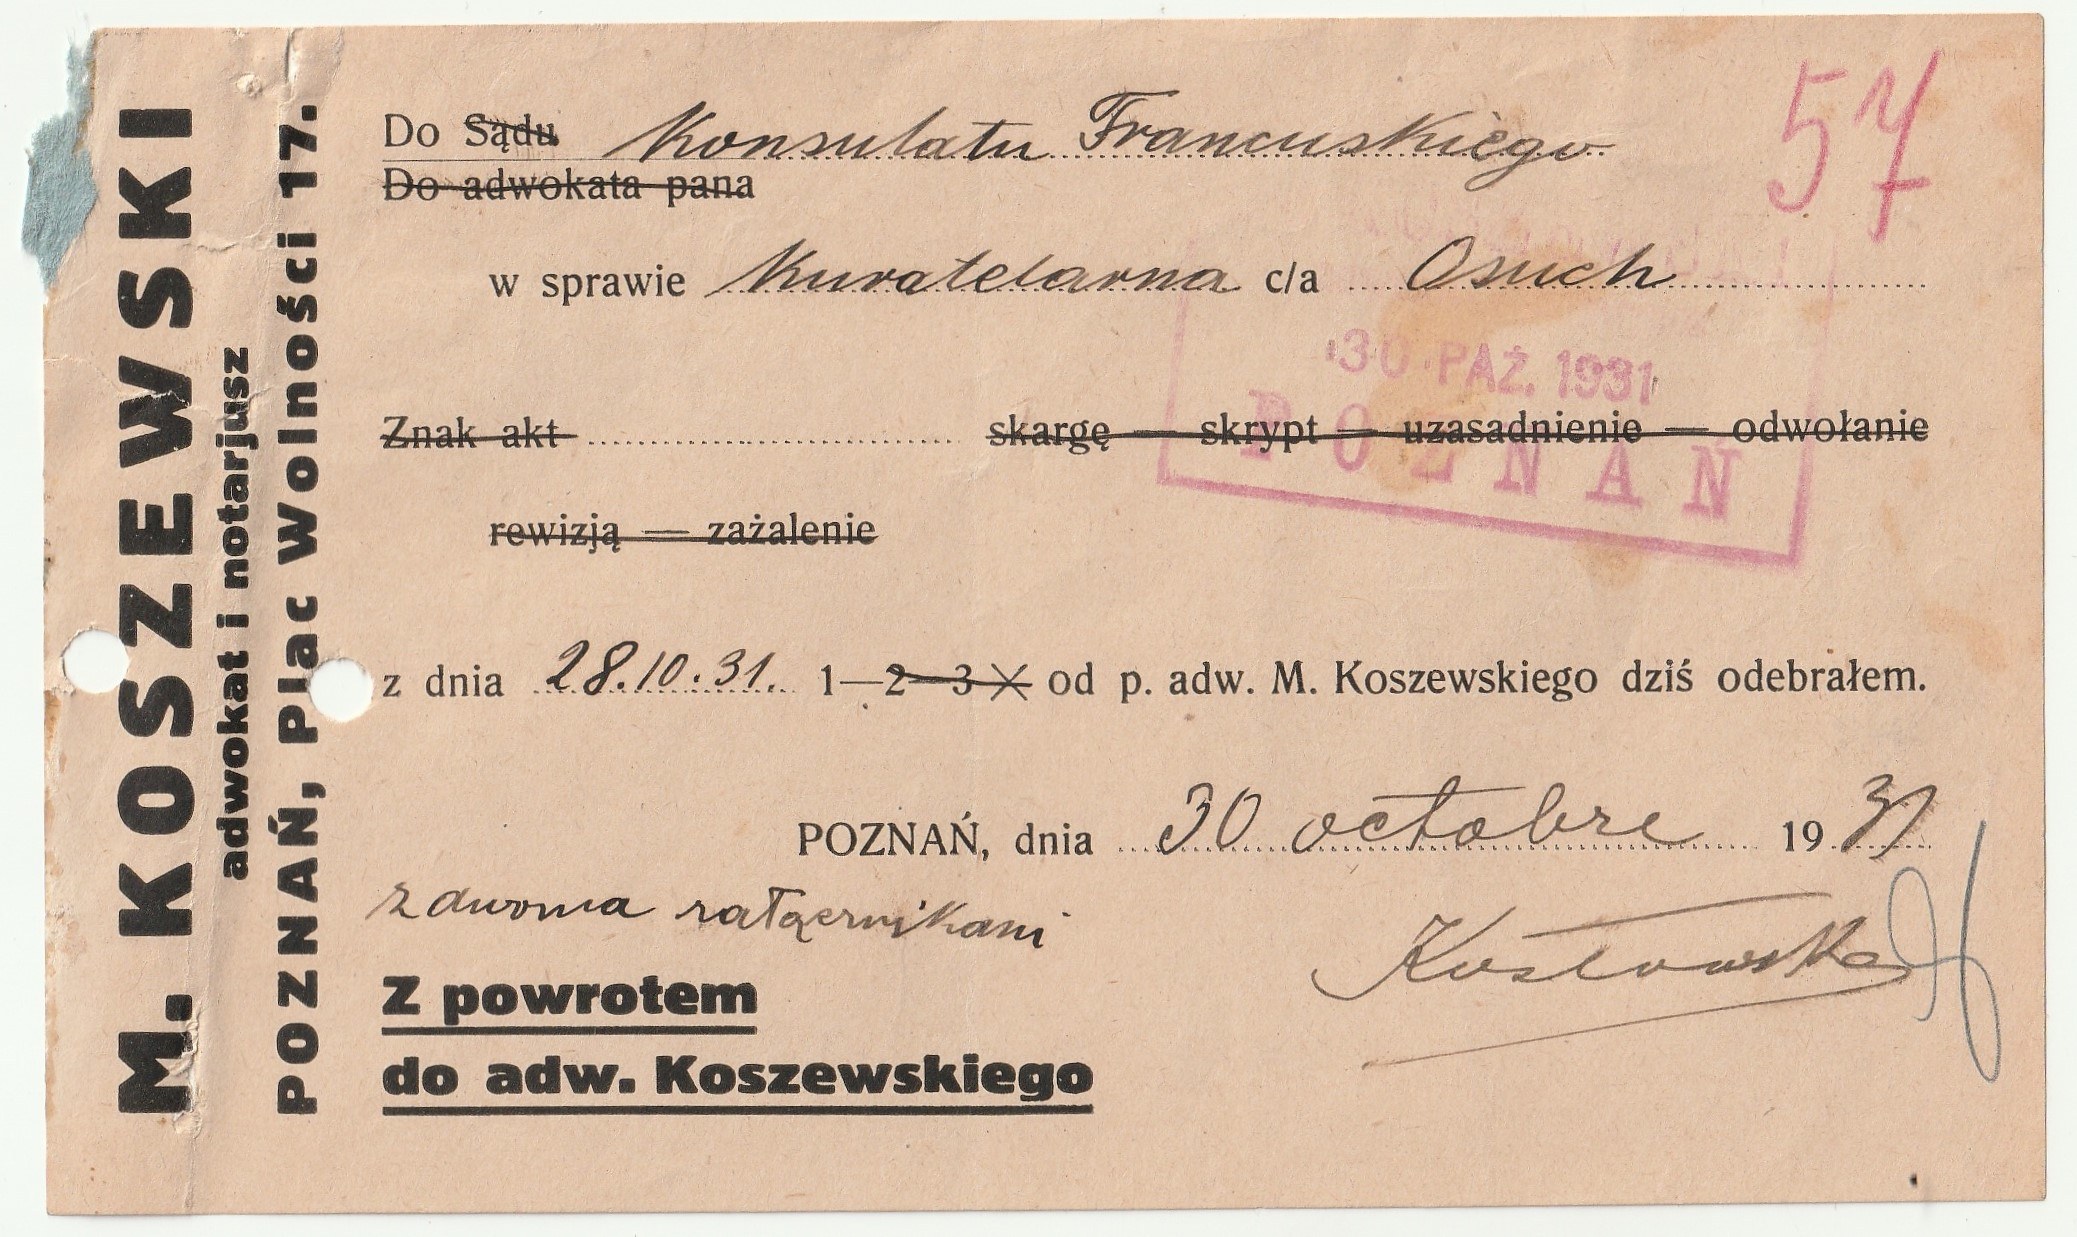 M. KOSZEWSKI
adwokat i notarjusz
POZNAŃ, Plac Wolności 17.
57
Do Sądu Konsulatu Francuskiego
Do adwokata pana
w sprawie Kuratelarna c/a Osuch
30 PAŹ. 1931
POZNAŃ
Znak akt skargę — skrypt — uzasadnienie — odwołanie
rewizją — zażalenie
z dnia 28.10.31. 1—2—3 X od p. adw. M. Koszewskiego dziś odebrałem.
POZNAŃ, dnia 30 octobre 1931
z dwoma załącznikami
Z powrotem
do adw. Koszewskiego